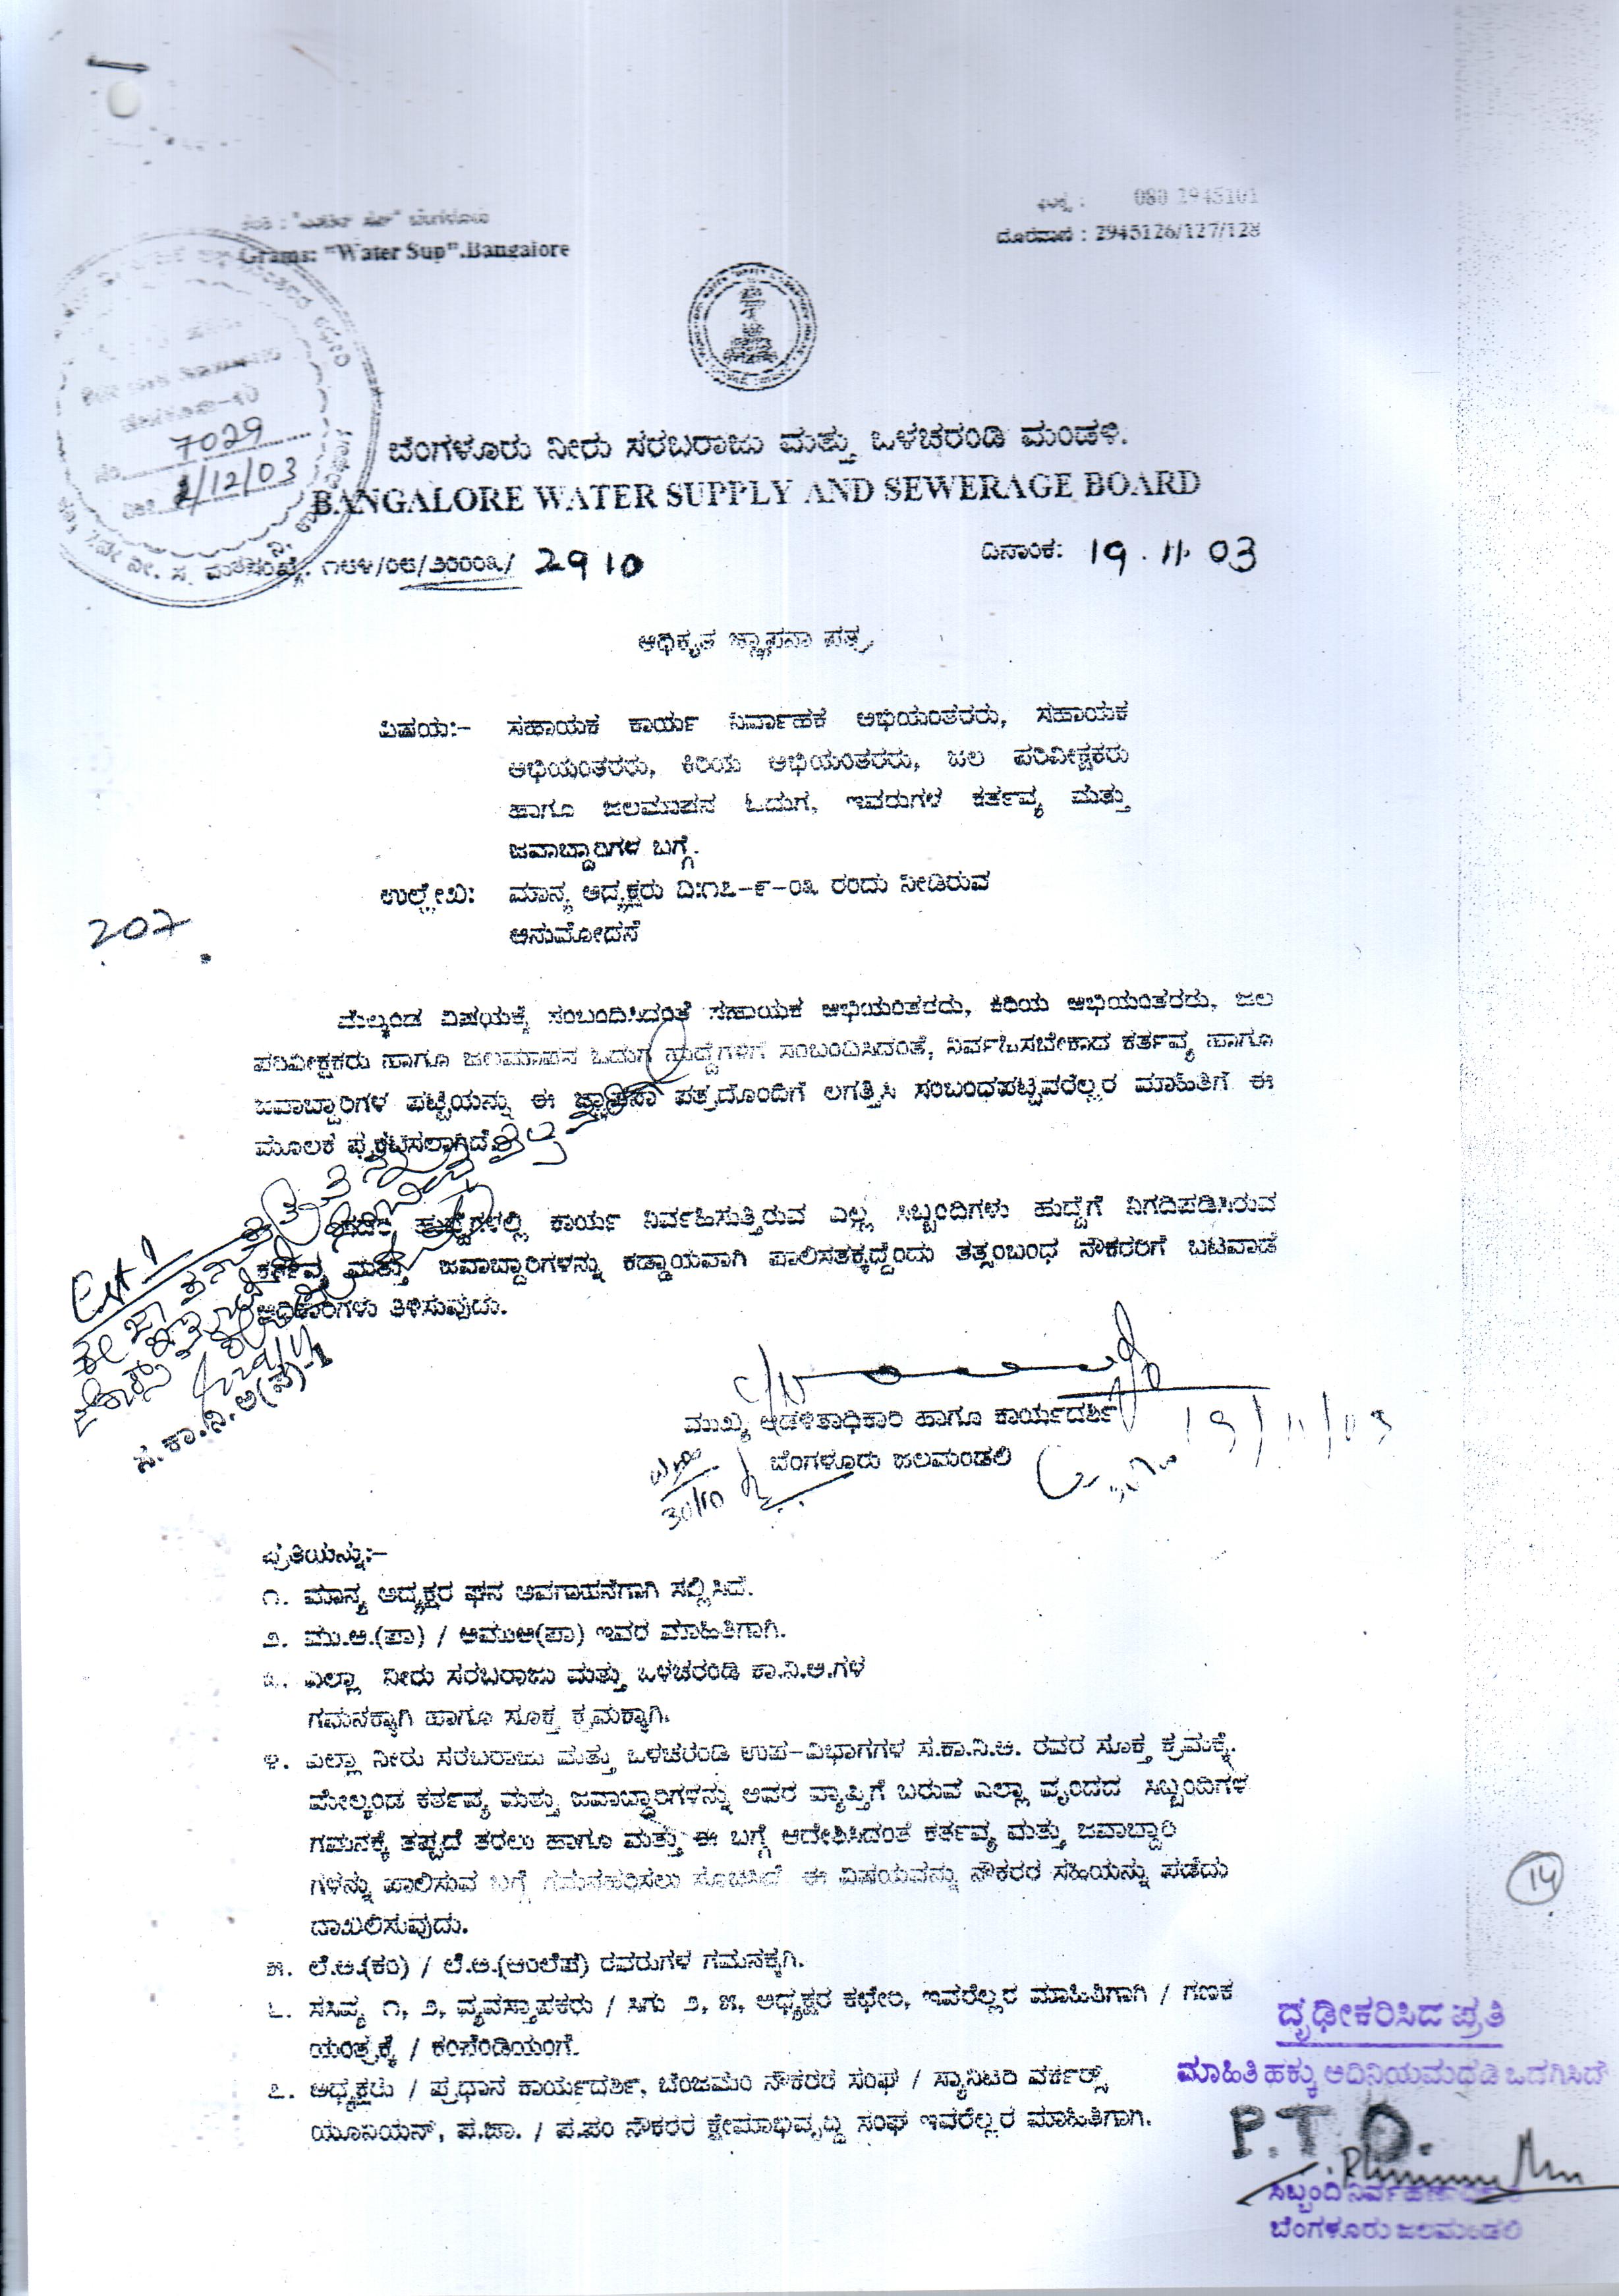 Grams: "Water Sup".Bangalore
080 2945101
ದೂರವಾಣಿ : 2945126/127/128
7029
1/12/03
ಬೆಂಗಳೂರು ನೀರು ಸರಬರಾಜು ಮತ್ತು ಒಳಚರಂಡಿ ಮಂಡಳಿ.
BANGALORE WATER SUPPLY AND SEWERAGE BOARD
2910
ದಿನಾಂಕ: 19.11.03
ಅಧಿಕೃತ ಜ್ಞಾಪನಾ ಪತ್ರ
ವಿಷಯ:- ಸಹಾಯಕ ಕಾರ್ಯ ನಿರ್ವಾಹಕ ಅಭಿಯಂತರರು, ಸಹಾಯಕ
ಅಭಿಯಂತರರು, ಕಿರಿಯ ಅಭಿಯಂತರರು, ಜಲ ಪರಿವೀಕ್ಷಕರು
ಹಾಗೂ ಜಲಮಾಪನ ಓದುಗ, ಇವರುಗಳ ಕರ್ತವ್ಯ ಮತ್ತು
ಜವಾಬ್ದಾರಿಗಳ ಬಗ್ಗೆ.
ಉಲ್ಲೇಖ: ಮಾನ್ಯ ಅಧ್ಯಕ್ಷರು ದಿ:೧೭-೯-೦೩ ರಂದು ನೀಡಿರುವ
ಅನುಮೋದನೆ
207
ಮೇಲ್ಕಂಡ ವಿಷಯಕ್ಕೆ ಸಂಬಂದಿಸಿದಂತೆ ಸಹಾಯಕ ಅಭಿಯಂತರರು, ಕಿರಿಯ ಅಭಿಯಂತರರು, ಜಲ
ಪರಿವೀಕ್ಷಕರು ಹಾಗೂ ಜಲಮಾಪನ ಓದುಗ ಹುದ್ದೆಗಳಿಗೆ ಸಂಬಂದಿಸಿದಂತೆ, ನಿರ್ವಹಿಸಬೇಕಾದ ಕರ್ತವ್ಯ ಹಾಗೂ
ಜವಾಬ್ದಾರಿಗಳ ಪಟ್ಟಿಯನ್ನು ಈ ಜ್ಞಾಪನಾ ಪತ್ರದೊಂದಿಗೆ ಲಗತ್ತಿಸಿ ಸಂಬಂಧಪಟ್ಟವರೆಲ್ಲರ ಮಾಹಿತಿಗೆ ಈ
ಮೂಲಕ ಪ್ರಕಟಿಸಲಾಗಿದೆ.
ಹುದ್ದೆಗಳಲ್ಲಿ ಕಾರ್ಯ ನಿರ್ವಹಿಸುತ್ತಿರುವ ಎಲ್ಲ ಸಿಬ್ಬಂದಿಗಳು ಹುದ್ದೆಗೆ ನಿಗದಿಪಡಿಸಿರುವ
ಕರ್ತವ್ಯ ಮತ್ತು ಜವಾಬ್ದಾರಿಗಳನ್ನು ಕಡ್ಡಾಯವಾಗಿ ಪಾಲಿಸತಕ್ಕದ್ದೆಂದು ತತ್ಸಂಬಂಧ ನೌಕರರಿಗೆ ಬಟವಾಡೆ
ಅಧಿಕಾರಿಗಳು ತಿಳಿಸುವುದು.
Est 1
ಸ.ಕಾ.ನಿ.ಅ(ಪ)-1
ಮುಖ್ಯ ಆಡಳಿತಾಧಿಕಾರಿ ಹಾಗೂ ಕಾರ್ಯದರ್ಶಿ
19/11/03
ಬೆಂಗಳೂರು ಜಲಮಂಡಲಿ
30/10
ಪ್ರತಿಯನ್ನು:-
೧. ಮಾನ್ಯ ಅಧ್ಯಕ್ಷರ ಘನ ಅವಗಾಹನೆಗಾಗಿ ಸಲ್ಲಿಸಿದೆ.
೨. ಮು.ಅ.(ಪಾ) / ಅಮುಅ(ಪಾ) ಇವರ ಮಾಹಿತಿಗಾಗಿ.
೩. ಎಲ್ಲಾ ನೀರು ಸರಬರಾಜು ಮತ್ತು ಒಳಚರಂಡಿ ಕಾ.ನಿ.ಅ.ಗಳ
ಗಮನಕ್ಕಾಗಿ ಹಾಗೂ ಸೂಕ್ತ ಕ್ರಮಕ್ಕಾಗಿ.
೪. ಎಲ್ಲಾ ನೀರು ಸರಬರಾಜು ಮತ್ತು ಒಳಚರಂಡಿ ಉಪ-ವಿಭಾಗಗಳ ಸ.ಕಾ.ನಿ.ಅ. ರವರ ಸೂಕ್ತ ಕ್ರಮಕ್ಕೆ.
ಮೇಲ್ಕಂಡ ಕರ್ತವ್ಯ ಮತ್ತು ಜವಾಬ್ದಾರಿಗಳನ್ನು ಅವರ ವ್ಯಾಪ್ತಿಗೆ ಬರುವ ಎಲ್ಲಾ ವೃಂದದ ಸಿಬ್ಬಂದಿಗಳ
ಗಮನಕ್ಕೆ ತಪ್ಪದೆ ತರಲು ಹಾಗೂ ಮತ್ತು ಈ ಬಗ್ಗೆ ಆದೇಶಿಸಿದಂತೆ ಕರ್ತವ್ಯ ಮತ್ತು ಜವಾಬ್ದಾರಿ
ಗಳನ್ನು ಪಾಲಿಸುವ ಬಗ್ಗೆ ಗಮನಹರಿಸಲು ಸೂಚಿಸಿದೆ ಈ ವಿಷಯವನ್ನು ನೌಕರರ ಸಹಿಯನ್ನು ಪಡೆದು
ದಾಖಲಿಸುವುದು.
14
೫. ಲೆ.ಅ.(ಕಂ) / ಲೆ.ಅ.(ಆಂಲೆಪ) ರವರುಗಳ ಗಮನಕ್ಕಾಗಿ.
೬. ಸಸಿವ್ಯ ೧, ೨, ವ್ಯವಸ್ತಾಪಕರು / ಸಿಗು ೨, ೫, ಅಧ್ಯಕ್ಷರ ಕಛೇರಿ, ಇವರೆಲ್ಲರ ಮಾಹಿತಿಗಾಗಿ / ಗಣಕ
ಯಂತ್ರಕ್ಕೆ / ಕಂಪೆಂಡಿಯಂಗೆ.
೭. ಅಧ್ಯಕ್ಷರು / ಪ್ರಧಾನ ಕಾರ್ಯದರ್ಶಿ, ಬೆಂಜಮಂ ನೌಕರರ ಸಂಘ / ಸ್ಯಾನಿಟರಿ ವರ್ಕರ್ಸ್
ಯೂನಿಯನ್, ಪ.ಜಾ. / ಪ.ಪಂ ನೌಕರರ ಕ್ಷೇಮಾಭಿವೃದ್ಧಿ ಸಂಘ ಇವರೆಲ್ಲರ ಮಾಹಿತಿಗಾಗಿ.
ದೃಢೀಕರಿಸಿದ ಪ್ರತಿ
ಮಾಹಿತಿ ಹಕ್ಕು ಅದಿನಿಯಮದಡಿ ಒದಗಿಸಿದೆ
P.T.O.
ಬೆಂಗಳೂರು ಜಲಮಂಡಲಿ